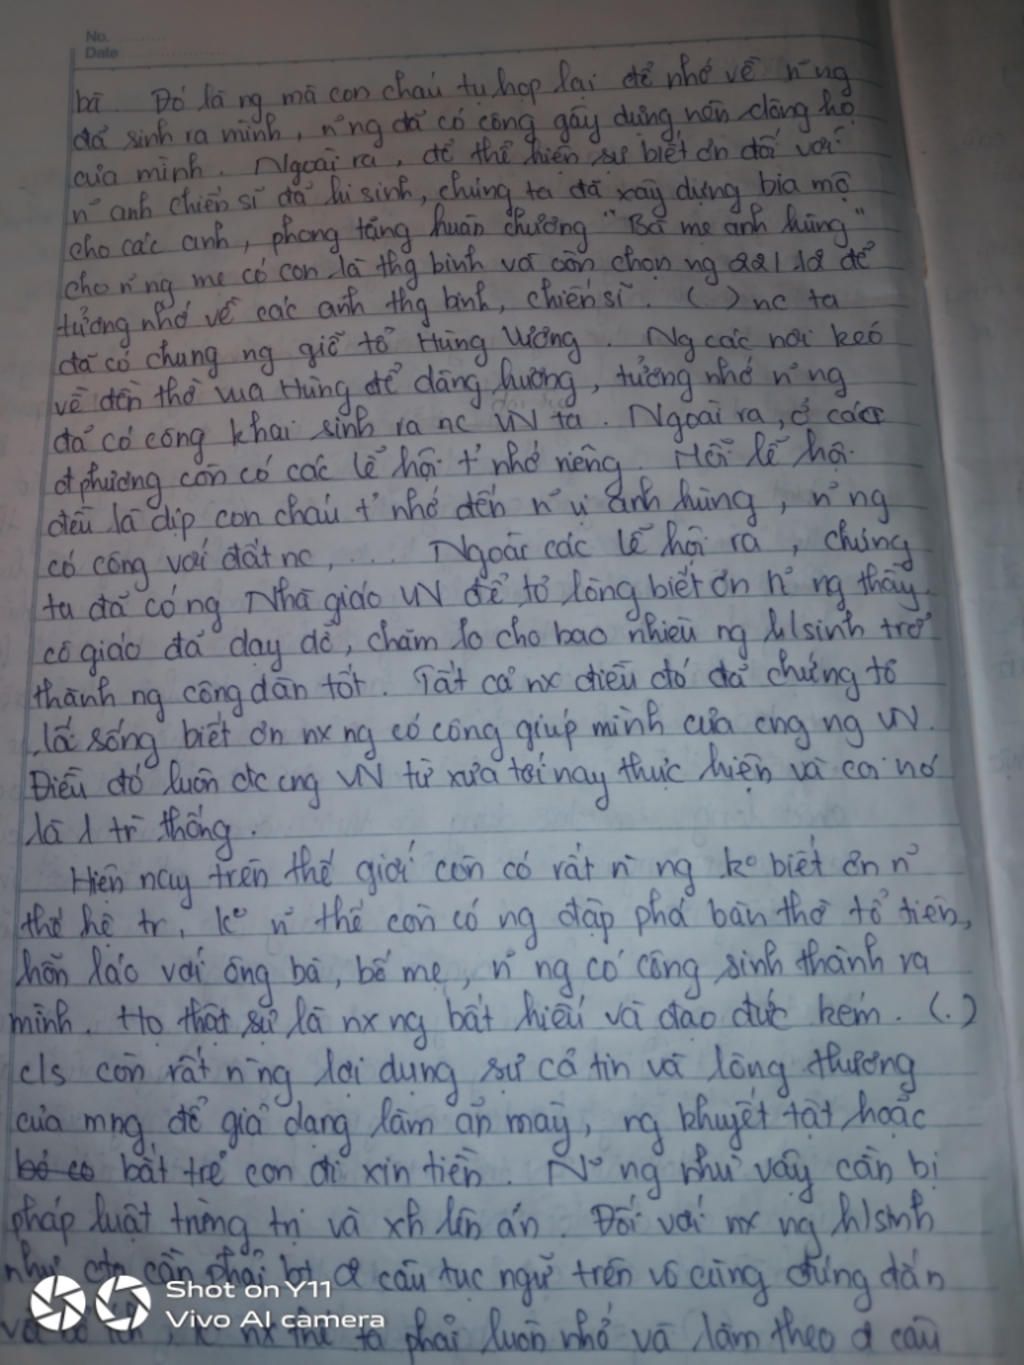 No.
Date
bà. Đó là ng mà con cháu tụ họp lại để nhớ về n~ ng
đã sinh ra mình, n~ ng đã có công gây dựng nên dòng họ
của mình. Ngoài ra, để thể hiện sự biết ơn đối với
n~ anh chiến sĩ đã hi sinh, chúng ta đã xây dựng bia mộ
cho các anh, phong tặng huân chương "Bà mẹ anh hùng"
cho n~ ng mẹ có con là thg binh và còn chọn ng 22/12 để
tưởng nhớ về các anh thg binh, chiến sĩ. ( ) nc ta
đã có chung ng giỗ tổ Hùng Vương. Ng các nơi kéo
về đền thờ vua Hùng để dâng hương, tưởng nhớ n~ ng
đã có công khai sinh ra nc VN ta. Ngoài ra, ở các
đ phương còn có các lễ hội t' nhớ riêng. Mỗi lễ hội
đều là dịp con cháu t' nhớ đến n~ vị anh hùng, n~ ng
có công với đất nc, ... Ngoài các lễ hội ra, chúng
ta đã có ng Nhà giáo VN để tỏ lòng biết ơn n~ ng thầy
cô giáo đã dạy dỗ, chăm lo cho bao nhiêu ng h/sinh trở
thành ng công dân tốt. Tất cả nx điều đó đã chứng tỏ
lối sống biết ơn nx ng có công giúp mình của cng ng VN.
Điều đó luôn đc cng VN từ xưa tới nay thực hiện và coi nó
là 1 tr` thống.
Hiện nay trên thế giới còn có rất n` ng k° biết ơn n~
thế hệ tr, k° n~ thế còn có ng đập phá bàn thờ tổ tiên,
hỗn láo với ông bà, bố mẹ, n~ ng có công sinh thành ra
mình. Họ thật sự là nx ng bất hiếu và đạo đức kém. (.)
c/s còn rất n` ng lợi dụng sự cả tin và lòng thương
của mng để giả dạng làm ăn mày, ng khuyết tật hoặc
bắt trẻ con đi xin tiền. N~ ng như vậy cần bị
pháp luật trừng trị và xh lên án. Đối với nx ng h/sinh
như cta cần phải câu tục ngữ trên vô cùng đúng đắn
k° nx thế ta phải luôn nhớ và làm theo câu
Shot on Y11
Vivo AI camera